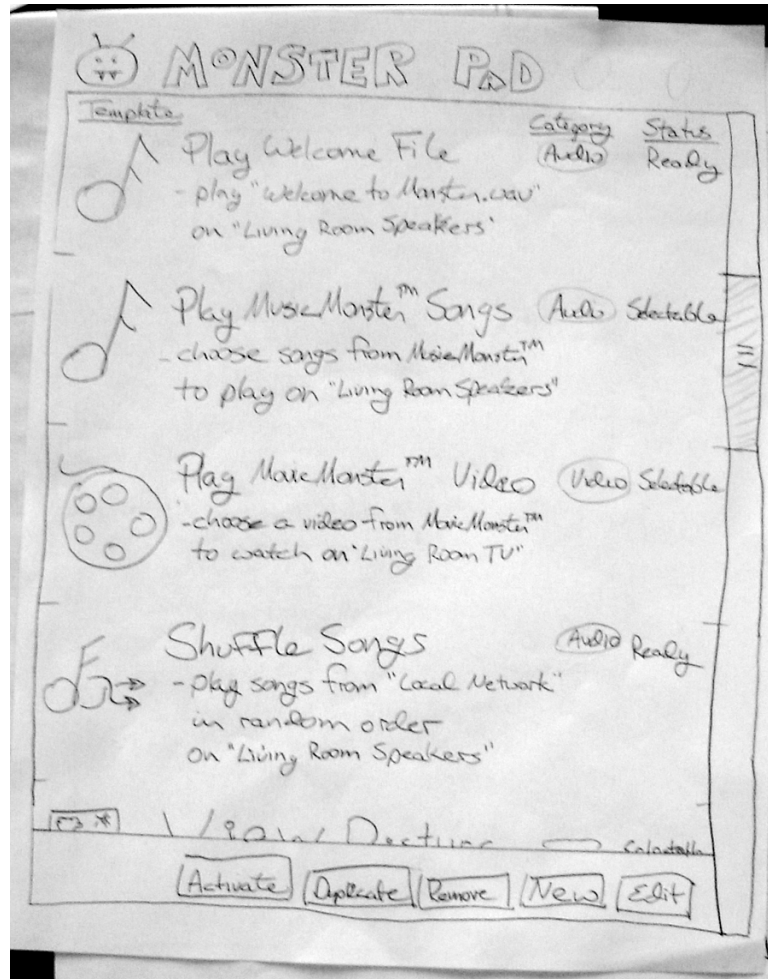 MONSTER PAD
Template Category Status
Play Welcome File Audio Ready
- play "Welcome to Monster.wav"
on "Living Room Speakers"
Play MusicMonster™ Songs Audio Selectable
- choose songs from MusicMonster™
to play on "Living Room Speakers"
Play MovieMonster™ Video Video Selectable
- choose a video from MovieMonster™
to watch on "Living Room TV"
Shuffle Songs Audio Ready
- play songs from "Local Network"
in random order
on "Living Room Speakers"
Activate Duplicate Remove New Edit